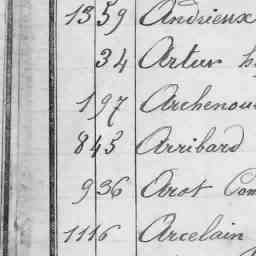 1359 Andrieux
34 Artur
197 Archenou
845 Arribard
936 Arot Com
1116 Arcelain